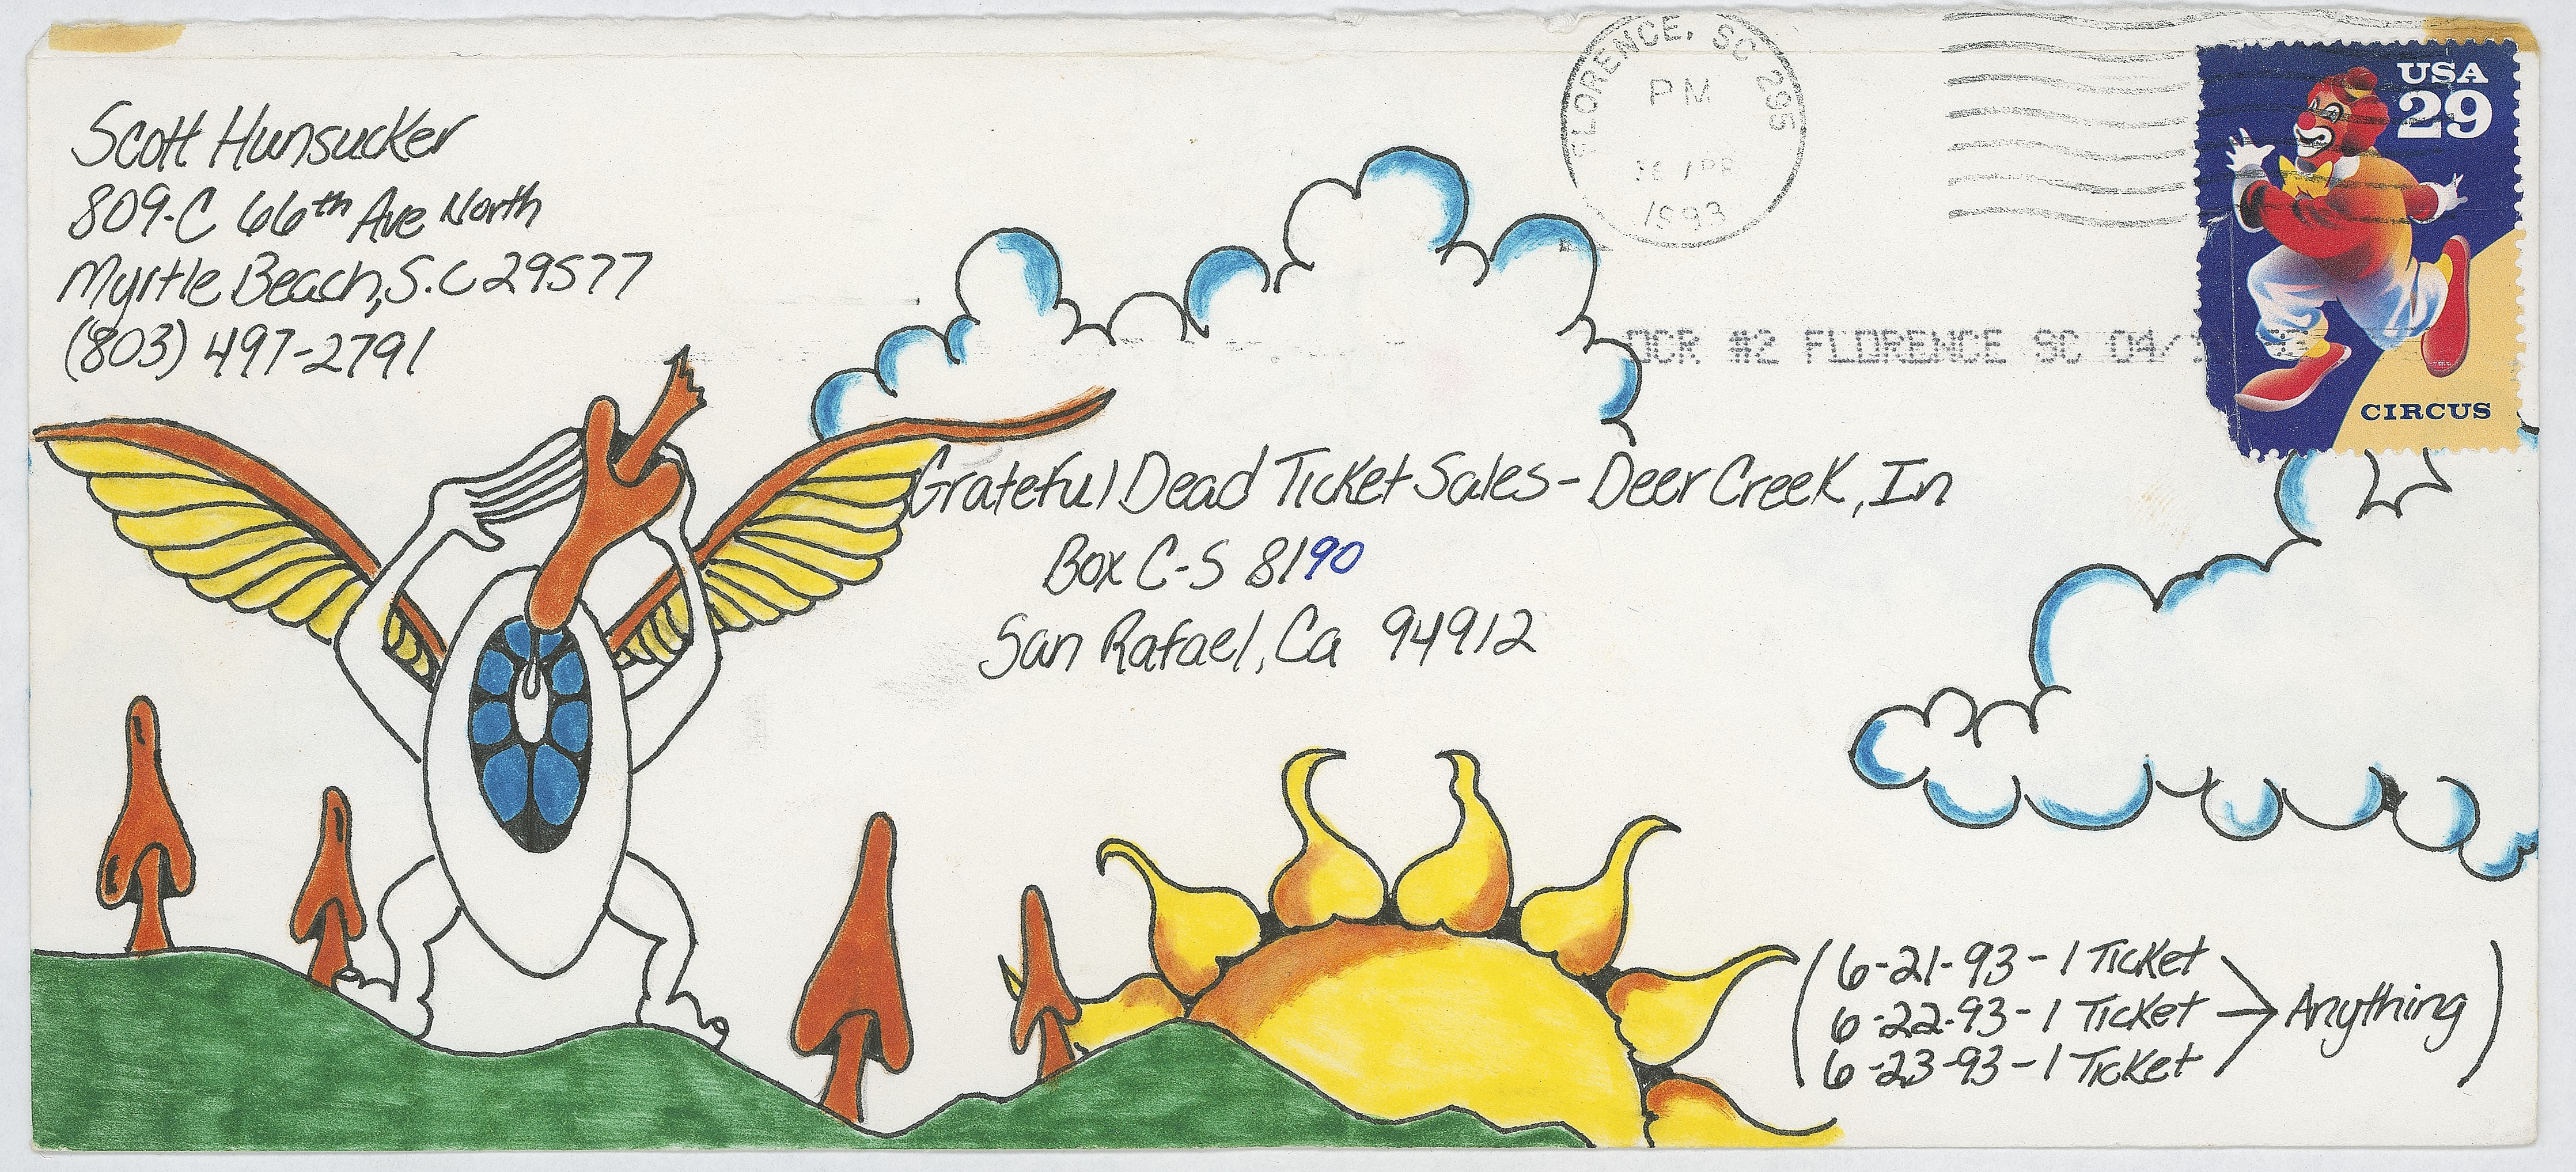 Scott Hunsucker
809-C 66th Ave North
Myrtle Beach, S.C 29577
(803) 497-2791
FLORENCE, SC 295
PM
1993
USA
29
CIRCUS
OCR #2 FLORENCE SC 04/
Grateful Dead Ticket Sales - Deer Creek, In
Box C-S 8190
San Rafael, Ca 94912
(6-21-93-1 Ticket
6-22-93-1 Ticket > Anything)
6-23-93-1 Ticket